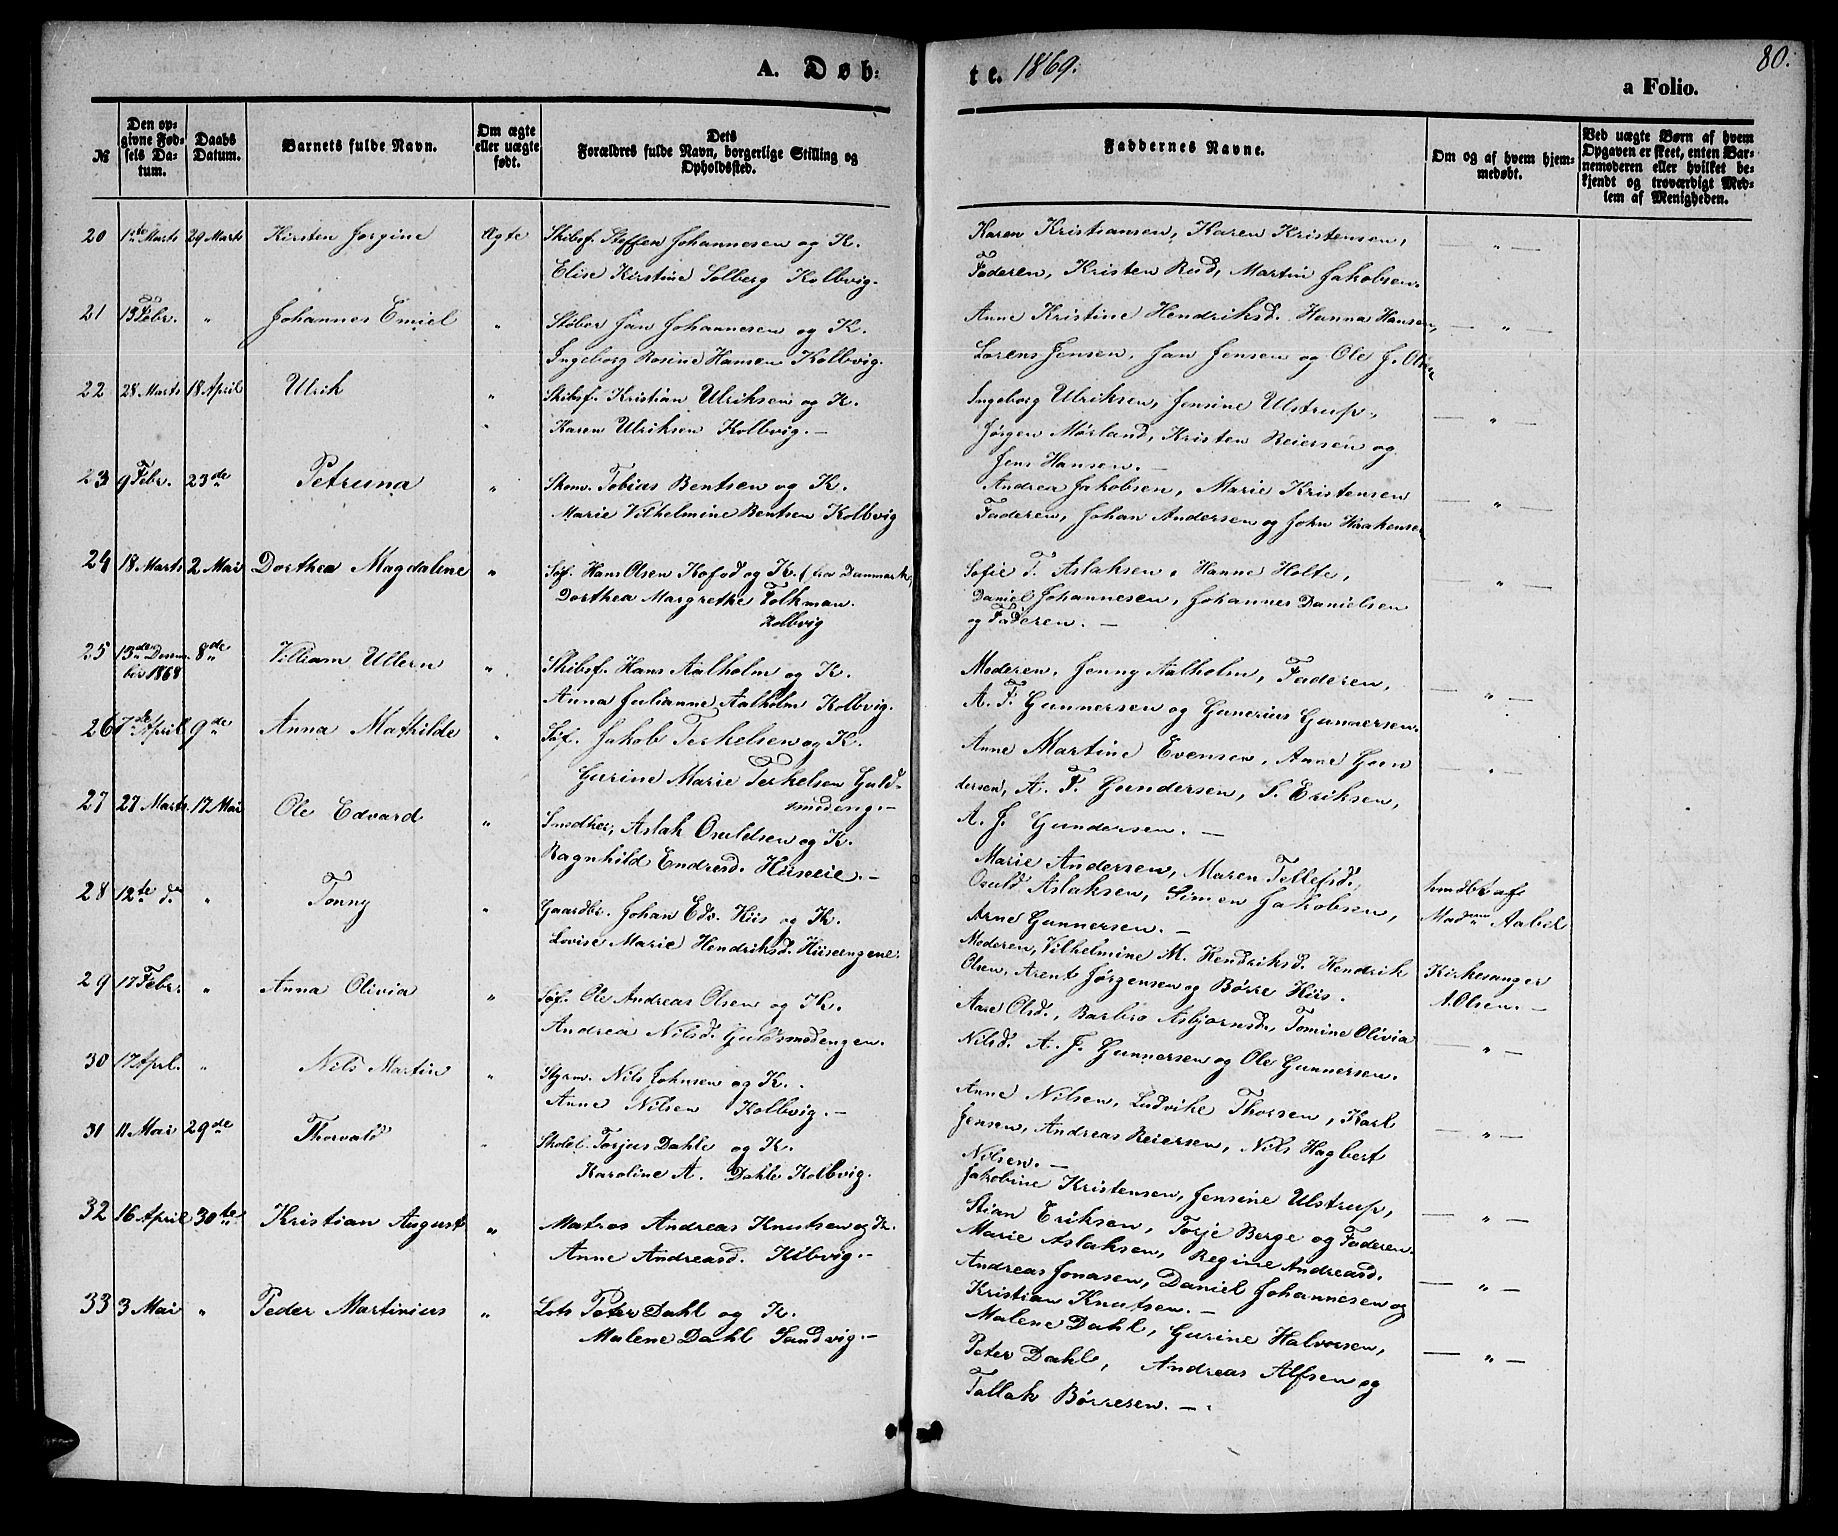 A. Døb:
te. 1869.
80.
a Folio.
№
Den op-
givne Fød-
sels Da-
tum.
Daabs
Datum.
Barnets fulde Navn.
Om ægte
eller uægte
født.
Dets
Forældres fulde Navn, borgerlige Stilling og
Opholdssted.
Faddernes Navne.
Om og af hvem hjem-
medøbt.
Ved uægte Børn af hvem
Opgaven er skeet, enten Bar-
nemoderen eller hvilket be-
kjendt og troværdigt Med-
lem af Menigheden.
20 1ste Marts 29 Marts Kirsten Jørgine Ægte Skibsf. Steffen Johannesen og K.
Elise Kirstine Solberg Kolbvig.
Karen Kristiansen, Karen Kristensen, — „ —
Faderen, Kristen Rud, Martin Jakobsen.
21 13 Febr. „ Johannes Emiel „ Støber Jan Johannesen og K.
Ingeborg Rosine Hansen Kolbvig.
Anne Kristine Hendriksd. Hanna Hansen, — „ —
Lorens Jensen, Jan Jensen og Ole J. Olsen
22 28 Marts 18 April Ulrik „ Skibsf. Kristian Ulriksen og K.
Karen Ulriksen Kolbvig. —
Ingeborg Ulriksen, Jensine Ulstrup,
Jørgen Mørland, Kristen Reiersen og — „ —
Jens Hansen. —
23 9 Febr. 23de Petruna „ Skom. Tobias Bentsen og K.
Marie Vilhelmine Bentsen Kolbvig
Andrea Jakobsen, Marie Kristensen
Faderen, Johan Andersen og John Haakensen — „ —
24 18 Marts 2 Mai Dorthea Magdalene „ Søf. Hans Olsen Kofod og K. (fra Danmark)
Dorthea Margrethe Folkman.
Kolbvig
Sofie T. Aslaksen, Hanne Holte,
Daniel Johannesen, Johannes Danielsen — „ —
og Faderen. —
25 13de Decem- 8de Villiam Ullern „ Skibsf. Hans Aalholm og K.
ber 1868
Anna Julianne Aalholm Kolbvig.
Moderen, Jenny Aalholm, Faderen,
A. F. Gunnersen og Gunerius Gunnersen. — „ —
26 7de April 9de Anna Mathilde „ Søf. Jakob Terkelsen og K.
Gurine Marie Terkelsen Guld-
smedeng. —
Anne Martine Evensen, Anne Gun
dersen, A. F. Gundersen, S. Eriksen, — „ —
A. J. Gundersen. —
27 27 Marts 17 Mai Ole Edvard „ Snedker, Aslak Osuldsen og K.
Ragnhild Endresd. Huseeie. —
Marie Andersen, Maren Tellefsd.
Osuld Aslaksen, Simen Jakobsen,
Arne Gunnersen. —
hmdbt. af
Madam Aabel
28 12te ds „ Tonny „ Gaardbr. Johan Edv. Hiis og K.
Lovise Marie Hendriksd. Hiisengene.
Moderen, Vilhelmine M. Hendriksd. Hendrik
Olsen, Arent Jørgensen og Børre Hiis.
Kirkesanger
A. Olsen. —
29 17 Febr. „ Anna Olivia „ Søf. Ole Andreas Olsen og K.
Andrea Nilsd. Guldsmedengen.
Aase Olsd., Barbro Asbjørnsd., Tomine Olivia
Nilsd. A. J. Gunnersen og Ole Gunnersen. — „ —
30 17 April. „ Nils Martin „ Styrm. Nils Johnsen og K.
Anne Nilsen Kolbvig. —
Anne Nilsen, Ludvike Thorsen, Karl
Jensen, Andreas Reiersen, Nils Hagbert — „ —
Nilsen. —
31 11 Mai 29de Thorvald „ Skolel. Torjus Dahle og K.
Karoline A. Dahle Kolbvig.
Jakobine Kristensen, Jensine Ulstrup,
Stian Eriksen, Torje Berge og Faderen. — „ —
32 16 April 30te Kristian August „ Matros Andreas Knutsen og K.
Anne Andreasd. Kolbvig. —
Marie Aslaksen, Regine Andreasd.
Andreas Jonasen, Daniel Johannesen og — „ —
Kristian Knutsen. —
33 3 Mai „ Peder Martinius „ Lots Peter Dahl og K.
Malene Dahl Sandvig. —
Malene Dahl, Gurine Halvorsen,
Peter Dahl, Andreas Alfsen og — „ —
Tallak Børresen. —